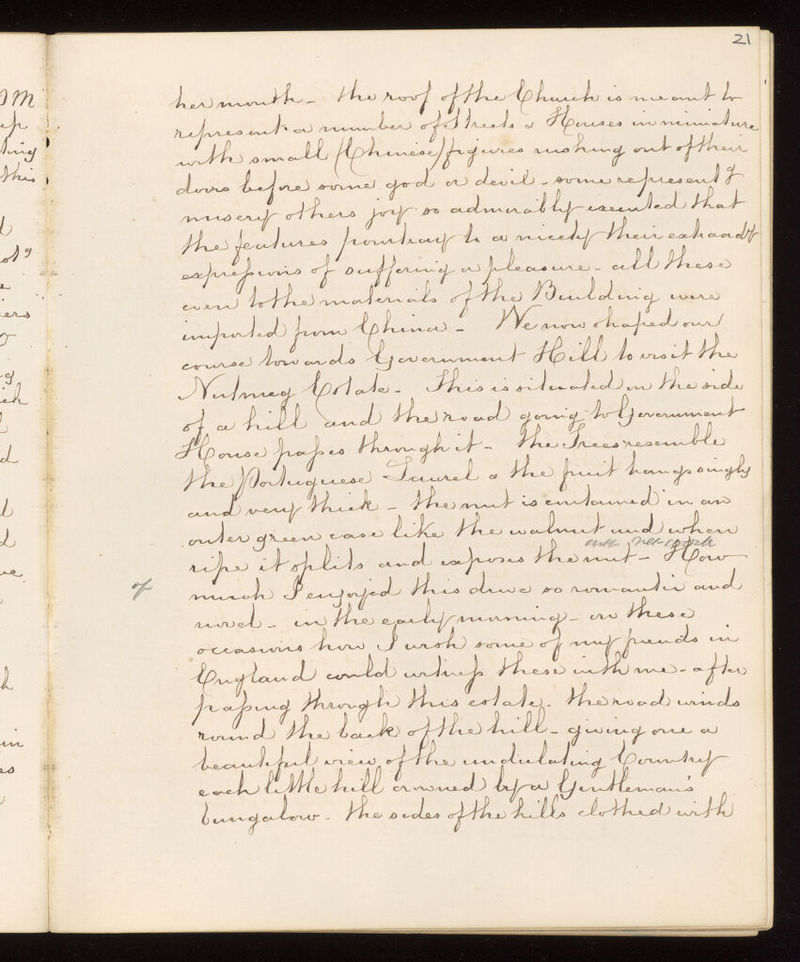 21
her mouth - the roof of the Church is meant to
represent a number of Streets & Houses in miniature
with small (Chinese) figures rushing out of their
doors before some god or devil - some represent g
misery others joy so admirably executed that
the features pourtray to a nicety their extraordy
expressions of suffering or pleasure - all these
even to the materials of the Building were
imported from China - We now shaped our
course towards Government Hill to visit the
Nutmeg Estate - This is situated on the side
of a hill and the road going to Government
House passes through it - the Trees resemble
the Portuguese Laurel & the fruit hangs singly
and very thick - the nut is contained in an
outer green case like the walnut and when
ripe it splits and exposes the nut - How
much I enjoyed this drive so romantic and
novel - in the early morning - on these
occasions how I wish some of my friends in
England could witness these with me - after
passing through this estate - the road winds
round the back of the hill - giving one a
beautiful view of the undulating Country
each little hill crowned by a Gentleman's
bungalow - the sides of the hills clothed with